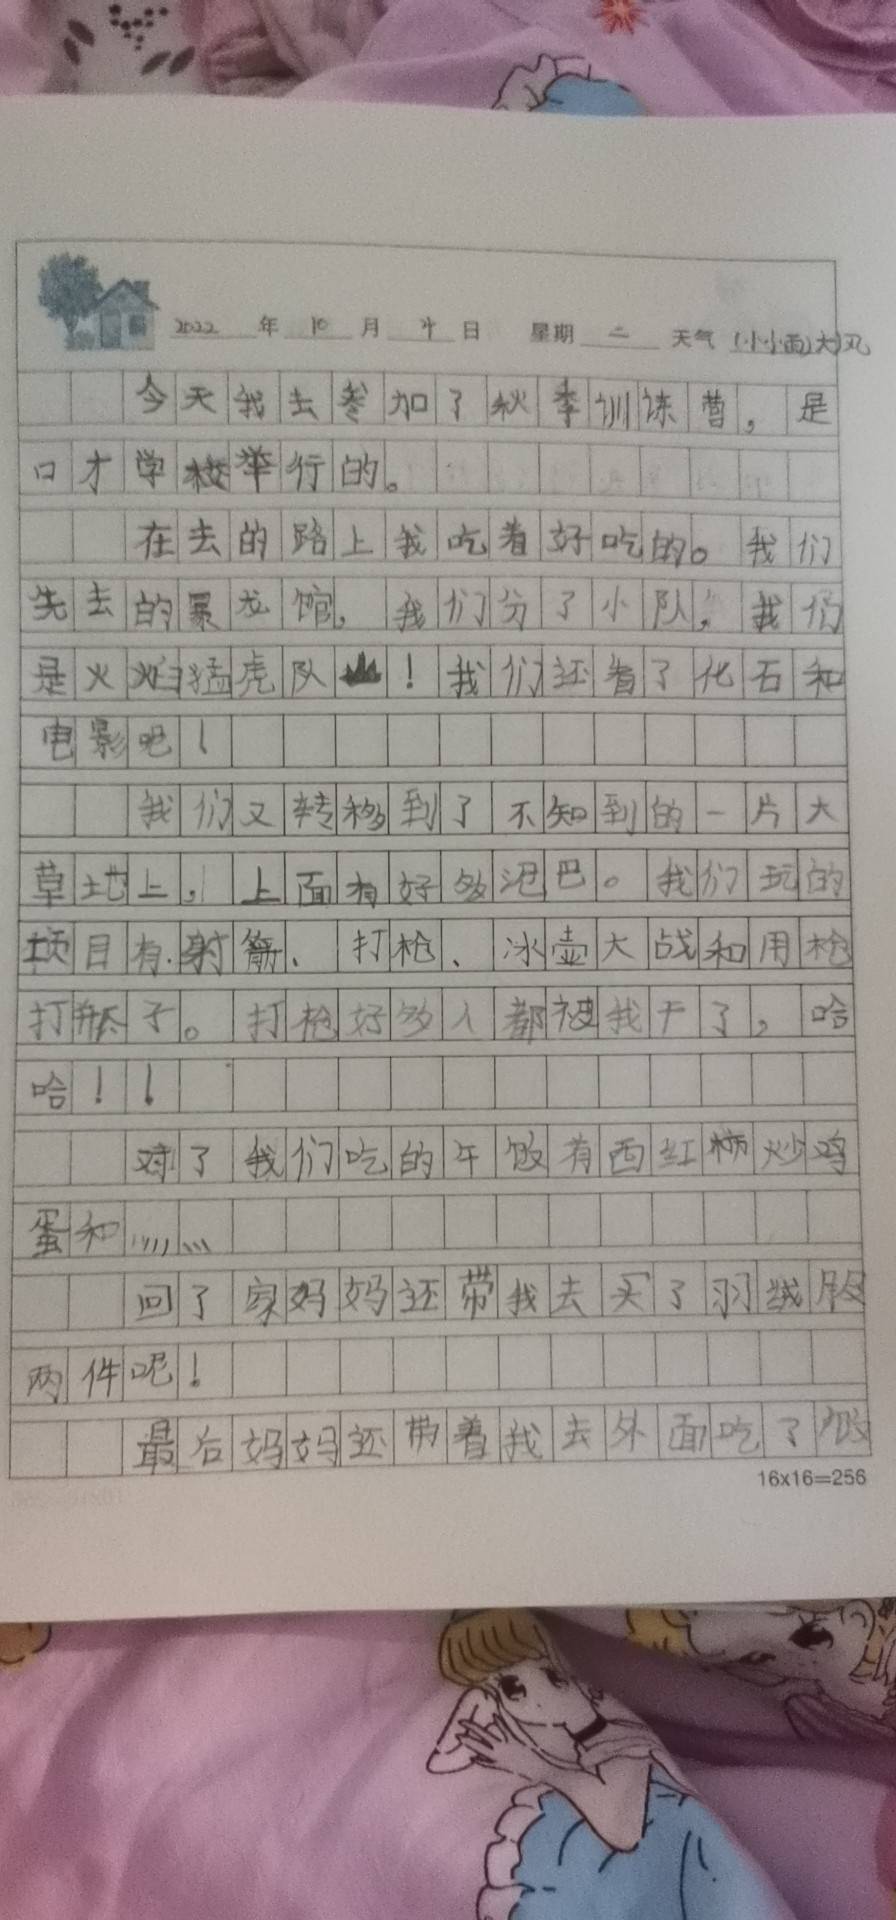 2022 年 10 月 4 日 星期 二 天气 (小小雨)大风
今天我去参加了秋季训练营，是
口才学校举行的。
在去的路上我吃着好吃的。我们
先去的暴龙馆，我们分了小队，我们
是火焰猛虎队！我们还看了化石和
电影吧！
我们又转移到了不知到的一片大
草地上，上面有好多泥巴。我们玩的
项目有.射箭、打枪、冰壶大战和用枪
打瓶子。打枪好多人都被我干了，哈
哈！！
对了我们吃的午饭有西红柿炒鸡
蛋和……
回了家妈妈还带我去买了羽绒服
两件呢！
最后妈妈还带着我去外面吃了饭
16x16=256